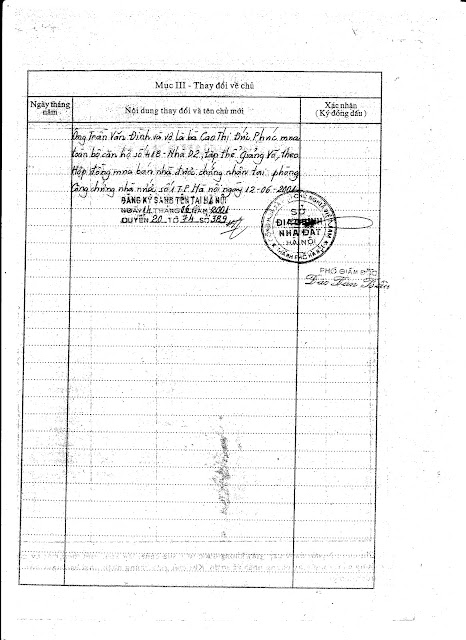 Mục III - Thay đổi về chủ
Ngày tháng năm
Nội dung thay đổi và tên chủ mới
Xác nhận
(Ký đóng dấu)
Ông Trần Văn Đỉnh và vợ là bà Cao Thị Đức Phúc mua
toàn bộ căn hộ số 418 - Nhà D2, tập thể Giảng Võ, theo
Hợp đồng mua bán nhà được chứng nhận tại phòng
Công chứng nhà nước số 1 T.P. Hà nội ngày 12-06-2001
ĐĂNG KÝ SANG TÊN TẠI HÀ NỘI
NGÀY 14 THÁNG 06 NĂM 2001
QUYỂN 20 TỜ 74 SỐ
SỞ
ĐỊA CHÍNH
NHÀ ĐẤT
HÀ NỘI
THÀNH PHỐ HÀ NỘI
PHÓ GIÁM ĐỐC